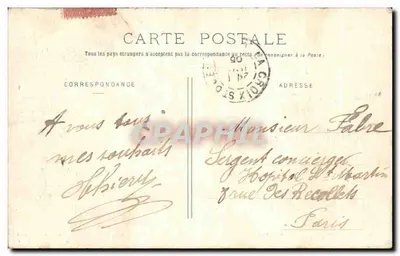 CARTE POSTALE
Tous les pays étrangers n'acceptent pas la correspondance au recto (se renseigner à la Poste).
CORRESPONDANCE
ADRESSE
LA CROIX ST
24
05
A vous tous
mes souhaits
Thierry
Monsieur Fabre
Sergent concierge
Hopital St Martin
8 rue des Recollets
Paris